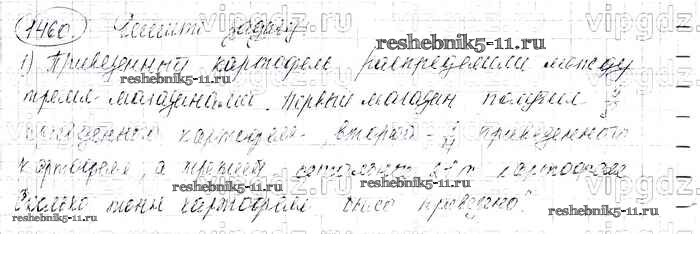 1460. Решить задачу:
1) Привезенный картофель распределили между
тремя магазинами. Первый магазин получил
привезенного картофеля, второй - привезенного
картофеля, а третий остальные т картофеля
Сколько тонн картофеля было привезено?
reshebnik5-11.ru
reshebnik5-11.ru
reshebnik5-11.ru
reshebnik5-11.ru
reshebnik5-11.ru
vipgdz.ru